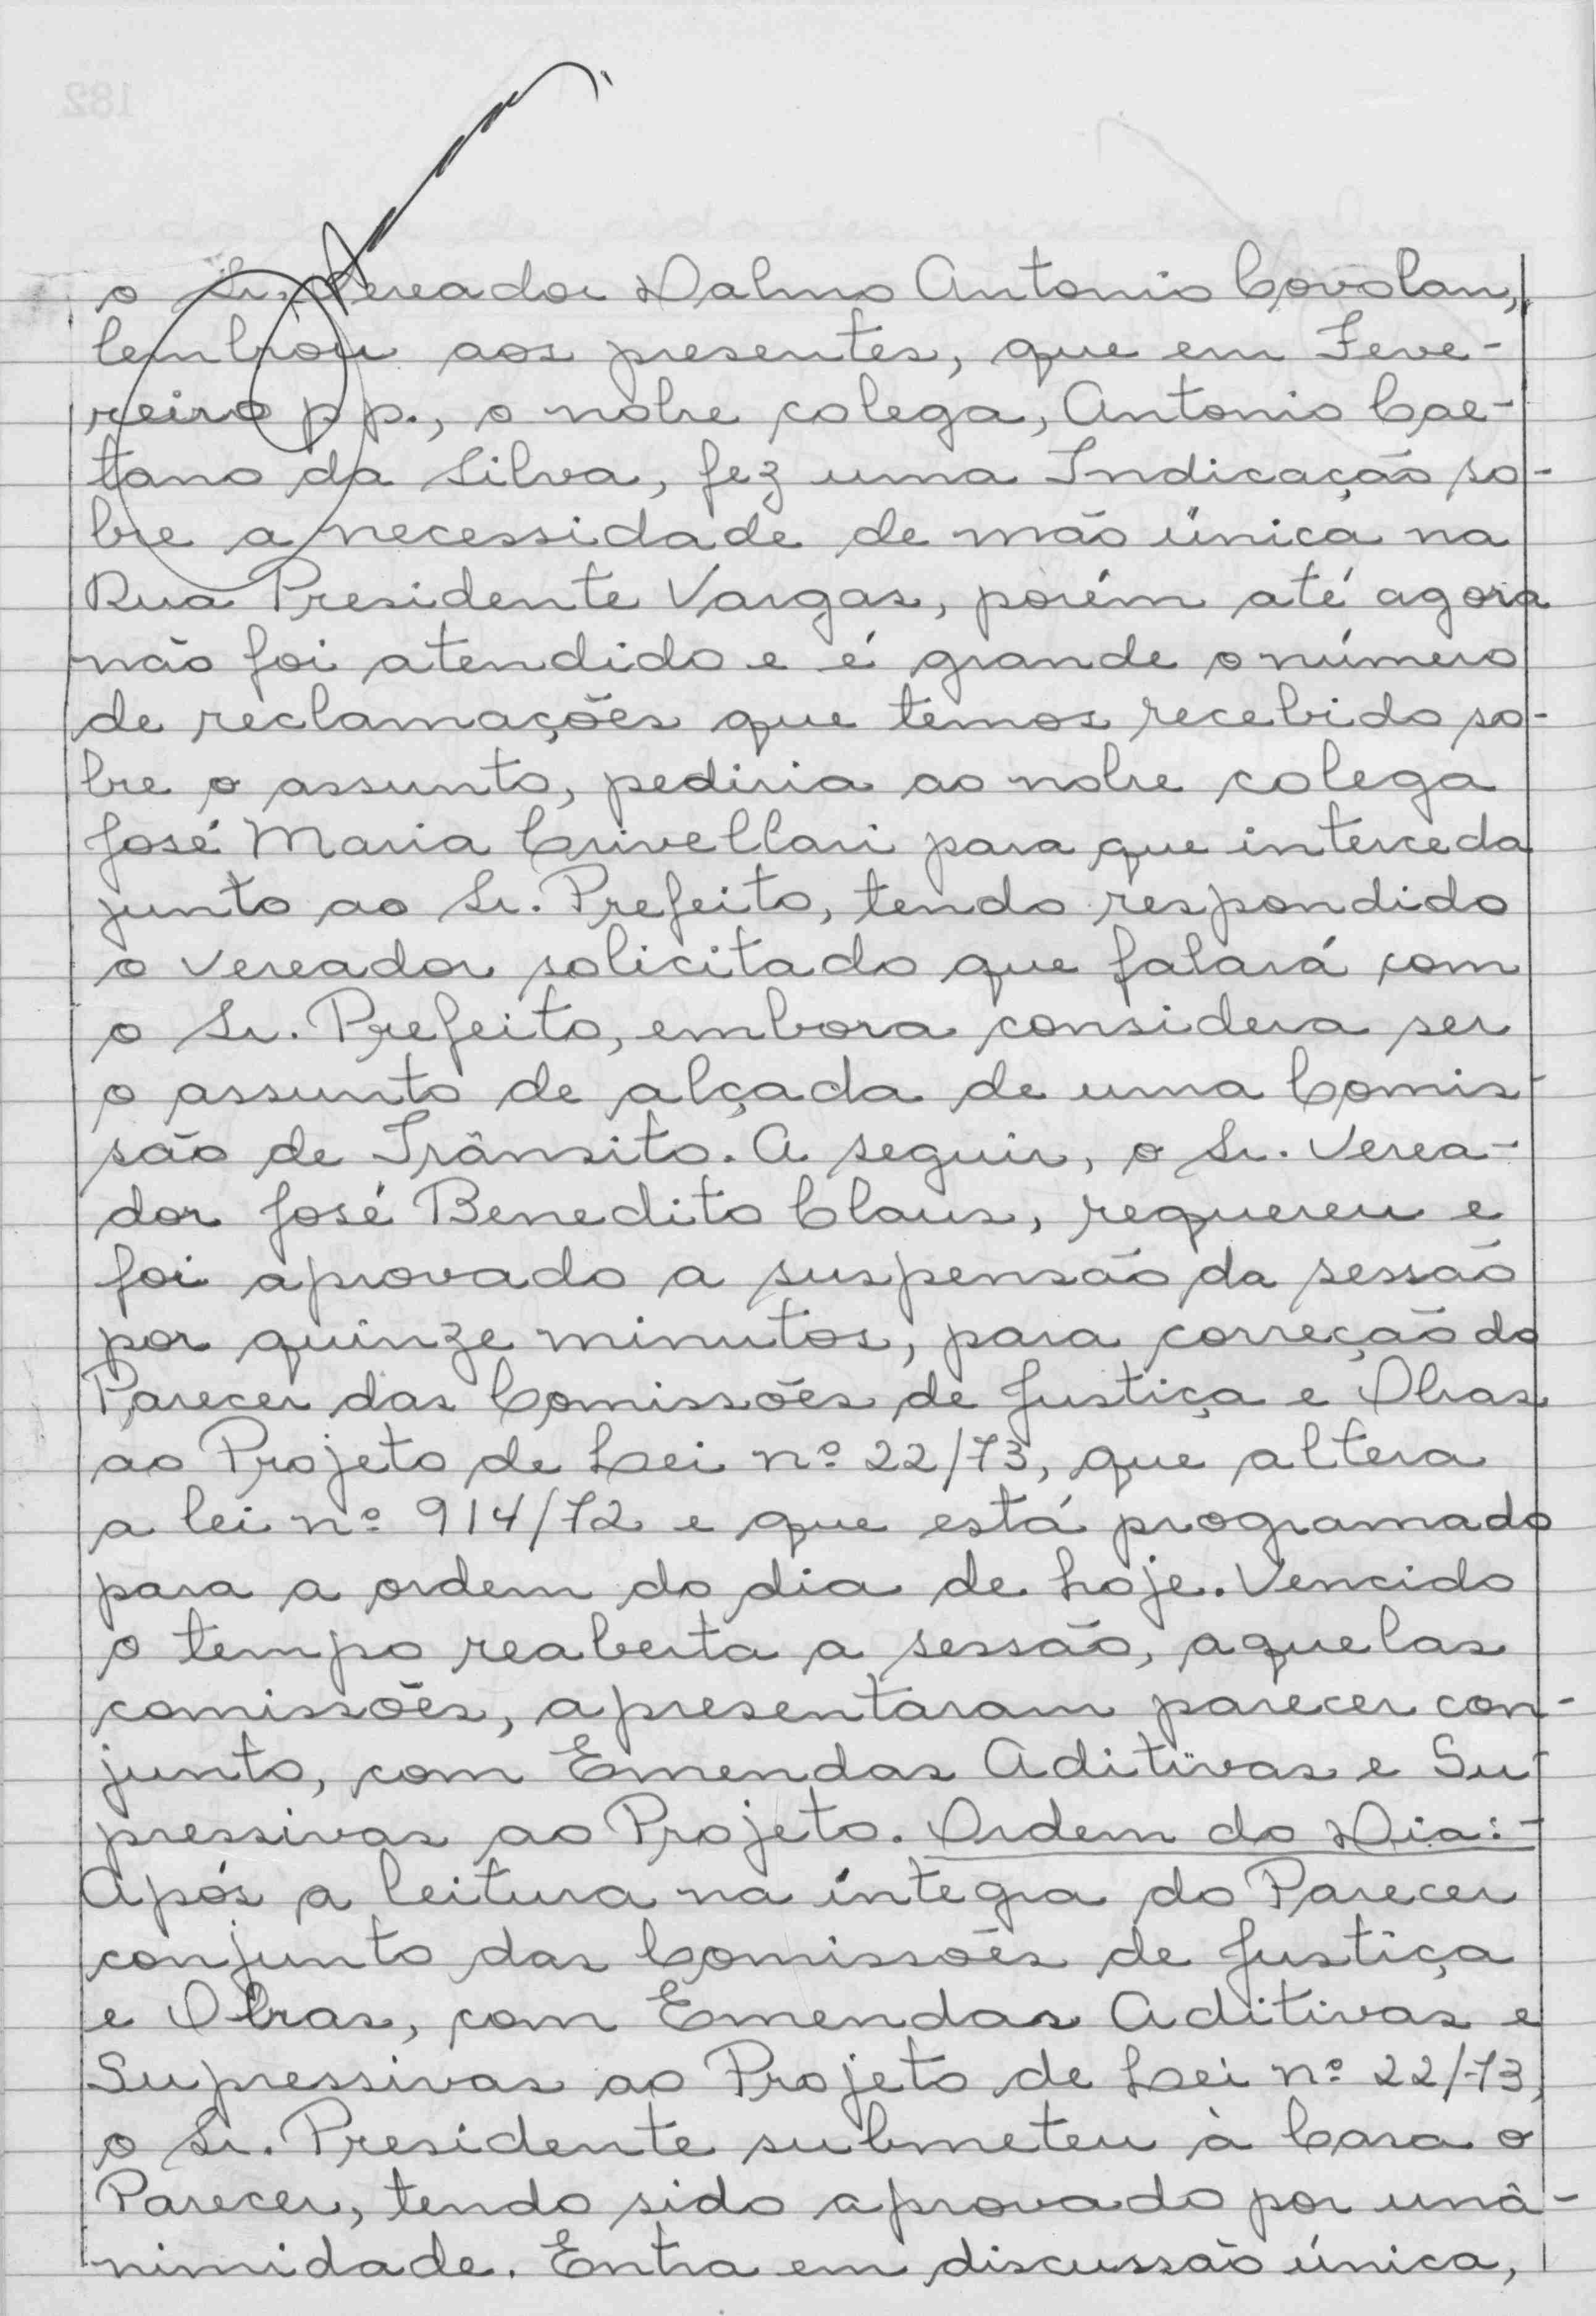 o Sr. Vereador Dalmo Antonio Covolan,
lembrou aos presentes, que em Feve-
reiro pp., o nobre colega, Antonio Cae-
tano da Silva, fez uma Indicação so-
bre a necessidade de mão única na
Rua Presidente Vargas, porém até agora
não foi atendido e é grande o número
de reclamações que temos recebido so-
bre o assunto, pediria ao nobre colega
José Maria Crivellari para que interceda
junto ao Sr. Prefeito, tendo respondido
o vereador solicitado que falará com
o Sr. Prefeito, embora considera ser
o assunto de alçada de uma Comis-
são de Trânsito. A seguir, o Sr. Verea-
dor José Benedito Claus, requereu e
foi aprovado a suspensão da sessão
por quinze minutos, para correção do
Parecer das Comissões de Justiça e Obras
ao Projeto de Lei nº 22/73, que altera
a lei nº 914/72 e que está programado
para a ordem do dia de hoje. Vencido
o tempo reaberta a sessão, aquelas
comissões, apresentaram parecer con-
junto, com Emendas Aditivas e Su-
pressivas ao Projeto. Ordem do Dia:-
Após a leitura na íntegra do Parecer
conjunto das Comissões de Justiça
e Obras, com Emendas Aditivas e
Supressivas ao Projeto de Lei nº 22/73,
o Sr. Presidente submeteu à Casa o
Parecer, tendo sido aprovado por unâ-
nimidade. Entra em discussão única,